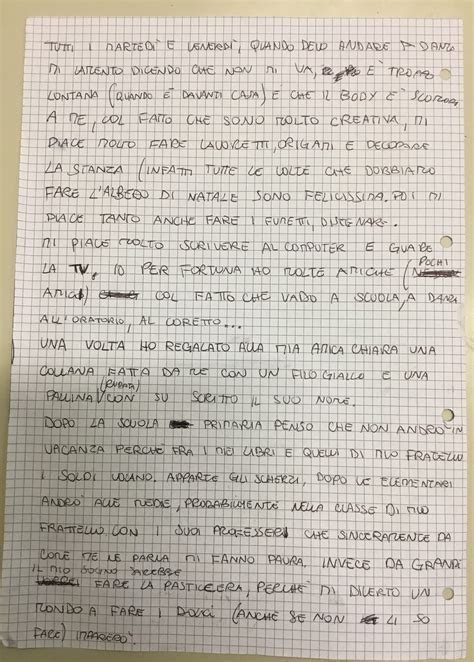 TUTTI I MARTEDI' E VENERDI', QUANDO DEVO ANDARE A DANZA
MI LAMENTO DICENDO CHE NON MI VA, E' TROPPO
LONTANA (QUANDO E' DAVANTI CASA) E CHE IL BODY E' SCOMODO
A ME, COL FATTO CHE SONO MOLTO CREATIVA, MI
PIACE MOLTO FARE LAVORETTI, ORIGAMI E DECORARE
LA STANZA (INFATTI TUTTE LE VOLTE CHE DOBBIAMO
FARE L'ALBERO DI NATALE SONO FELICISSIMA. POI MI
PIACE TANTO ANCHE FARE I FUMETTI, DISEGNARE.
MI PIACE MOLTO SCRIVERE AL COMPUTER E GUARDARE
LA TV, IO PER FORTUNA HO MOLTE AMICHE (POCHI
AMICI) COL FATTO CHE VADO A SCUOLA, A DANZA
ALL'ORATORIO, AL CORETTO...
UNA VOLTA HO REGALATO ALLA MIA AMICA CHIARA UNA
COLLANA FATTA DA ME CON UN FILO GIALLO E UNA
PALLINA (RUBATA) CON SU SCRITTO IL SUO NOME.
DOPO LA SCUOLA PRIMARIA PENSO CHE NON ANDRO' IN
VACANZA PERCHE' FRA I MIEI LIBRI E QUELLI DI MIO FRATELLO
I SOLDI VOLANO. APPARTE GLI SCHERZI, DOPO LE ELEMENTARI
ANDRO' ALLE MEDIE, PROBABILMENTE NELLA CLASSE DI MIO
FRATELLO CON I SUOI PROFESSERI CHE SINCERAMENTE DA
COME ME LE PARLA MI FANNO PAURA. INVECE DA GRANDE
IL MIO SOGNO SAREBBE FARE LA PASTICCERA, PERCHE' MI DIVERTO UN
MONDO A FARE I DOLCI (ANCHE SE NON LI SO
FARE) IMPARERO'.